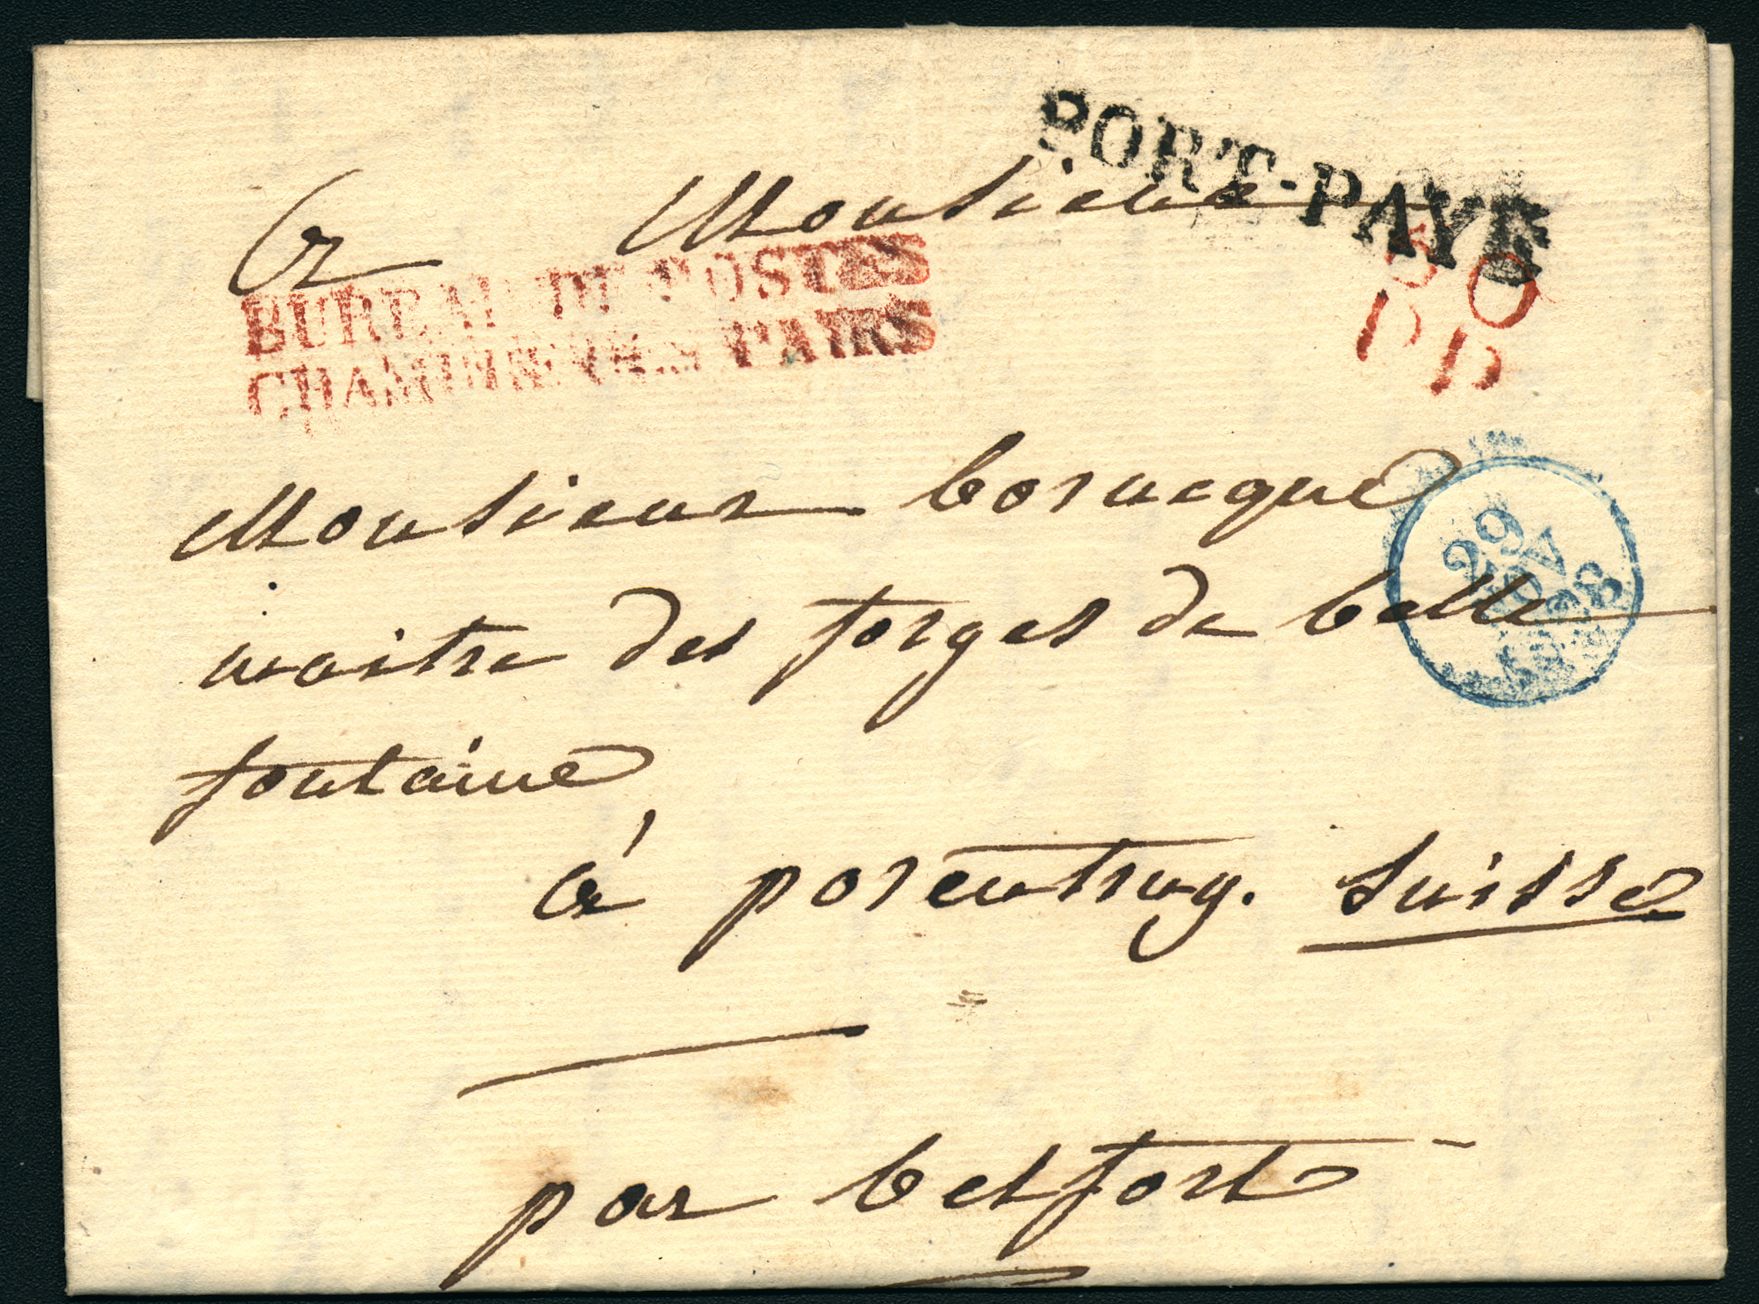 PORT-PAYÉ
a Monsieur
BUREAU DE POSTES
CHAMBRE DES PAIRS
60
P P
Monsieur borneque
maitre des forges de belle
fontaine
29
1828
à porentruy. Suisse
par betfort